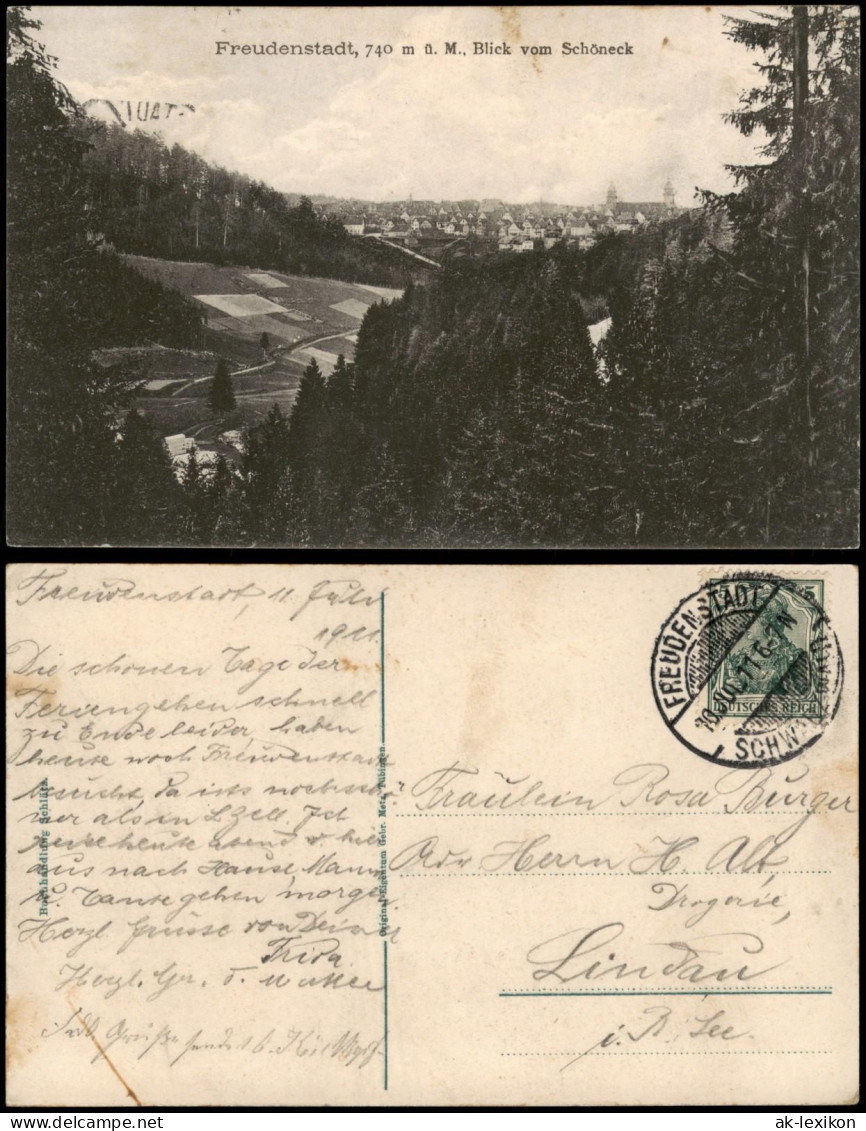 Freudenstadt, 740 m ü. M., Blick vom Schöneck
Freudenstadt, 11. Juli
1911.
Die schönen Tage der
Ferien gehen schnell
zu Ende leider, haben
heute noch Freudenstadt
besucht, da ists noch schö-
ner als in L.Zell. Ich
reise heute abend v. hier
aus nach Hause, Mama
u. Tante gehen morgen.
Herzl. Grüsse von Deiner
Frida.
Herzl. Gr. v. Mutter
Buchhandlung Schlätz.
Original-Eigentum Gebr. Metz, Tübingen.
FREUDENSTADT
10. JUL. 11 6-7 N
SCHWARZWALD
DEUTSCHES REICH
5
Fräulein Rosa Burger
Adr. Herrn H. Alt,
Drogerie,
Lindau
i. B. See.
ak-lexikon